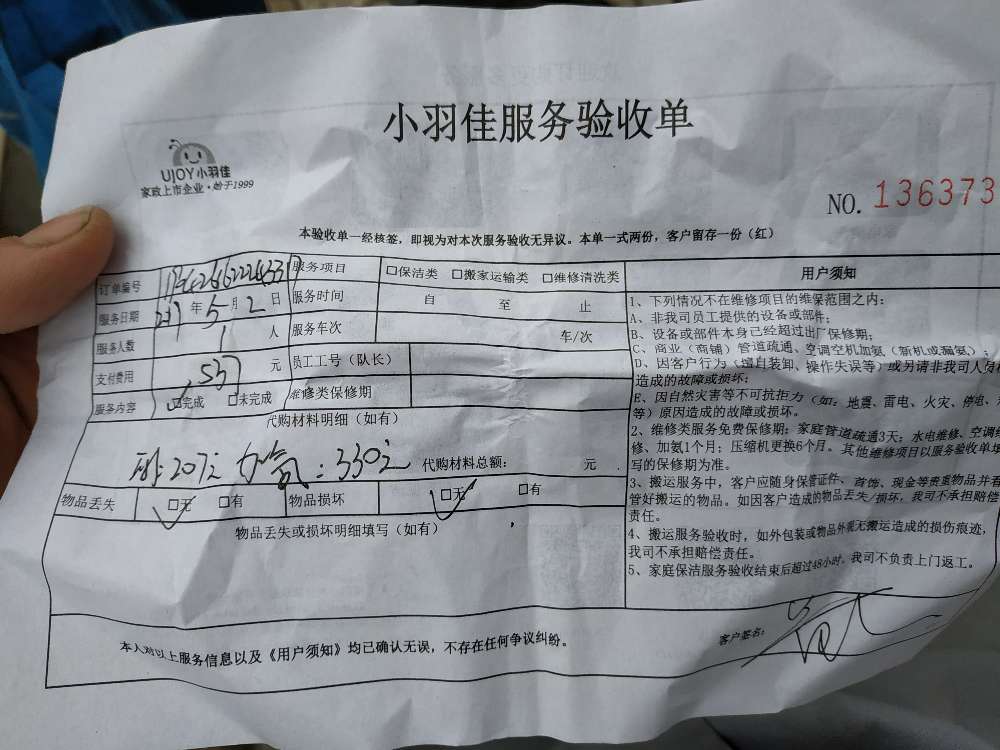 小羽佳服务验收单
UJOY小羽佳
家政上市企业·始于1999
NO. 136373
本验收单一经核签，即视为对本次服务验收无异议。本单一式两份，客户留存一份（红）
订单编号
服务项目 □保洁类 □搬家运输类 □维修清洗类
服务日期 年 5 月 2 日
服务时间 自 至 止
服务人数 1 人
服务车次 车/次
支付费用 537 元
员工工号（队长）
服务内容 □完成 □未完成
维修类保修期
代购材料明细（如有）
207元 加氟：330元
代购材料总额： 元
物品丢失 □无 □有 物品损坏 □无 □有
物品丢失或损坏明细填写（如有）
用户须知
1、下列情况不在维修项目的维保范围之内：
A、非我司员工提供的设备或部件；
B、设备或部件本身已经超过出厂保修期；
C、商业（商铺）管道疏通、空调空机加氨（新机或漏氨）；
D、因客户行为（擅自装卸、操作失误等）或另请非我司人员
造成的故障或损坏；
E、因自然灾害等不可抗拒力（如：地震、雷电、火灾、停电、
等）原因造成的故障或损坏。
2、维修类服务免费保修期：家庭管道疏通3天；水电维修、空调维
修、加氨1个月；压缩机更换6个月。其他维修项目以服务验收单填
写的保修期为准。
3、搬运服务中，客户应随身保管证件、首饰、现金等贵重物品并看
管好搬运的物品。如因客户造成的物品丢失/损坏，我司不承担赔偿
责任。
4、搬运服务验收时，如外包装或物品外观无搬运造成的损伤痕迹，
我司不承担赔偿责任。
5、家庭保洁服务验收结束后超过48小时，我司不负责上门返工。
本人对以上服务信息以及《用户须知》均已确认无误，不存在任何争议纠纷。
客户签名：